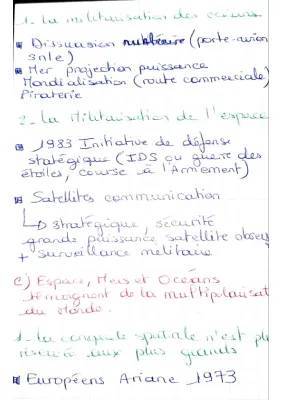 1. La militarisation des océans
Dissuasion nubléaire (porte-avion
snle)
Mer projection puissance
Mondialisation (route commerciale)
Piraterie
2 - La Militarisation de l'espace
1983 Initiative de défense
statégique (IDS ou guerre des
étoiles, course à l'Armement)
Satellites communication
↳ stratégique, sécurité
grande puissance, satellite observ
+ surveillance militaire
C) Espace, Mers et Océans
témoignent de la multipolarisat
du Monde.
1 - La conquête spatiale n'est pl
réservée aux plus grands
Européens Ariane 1973